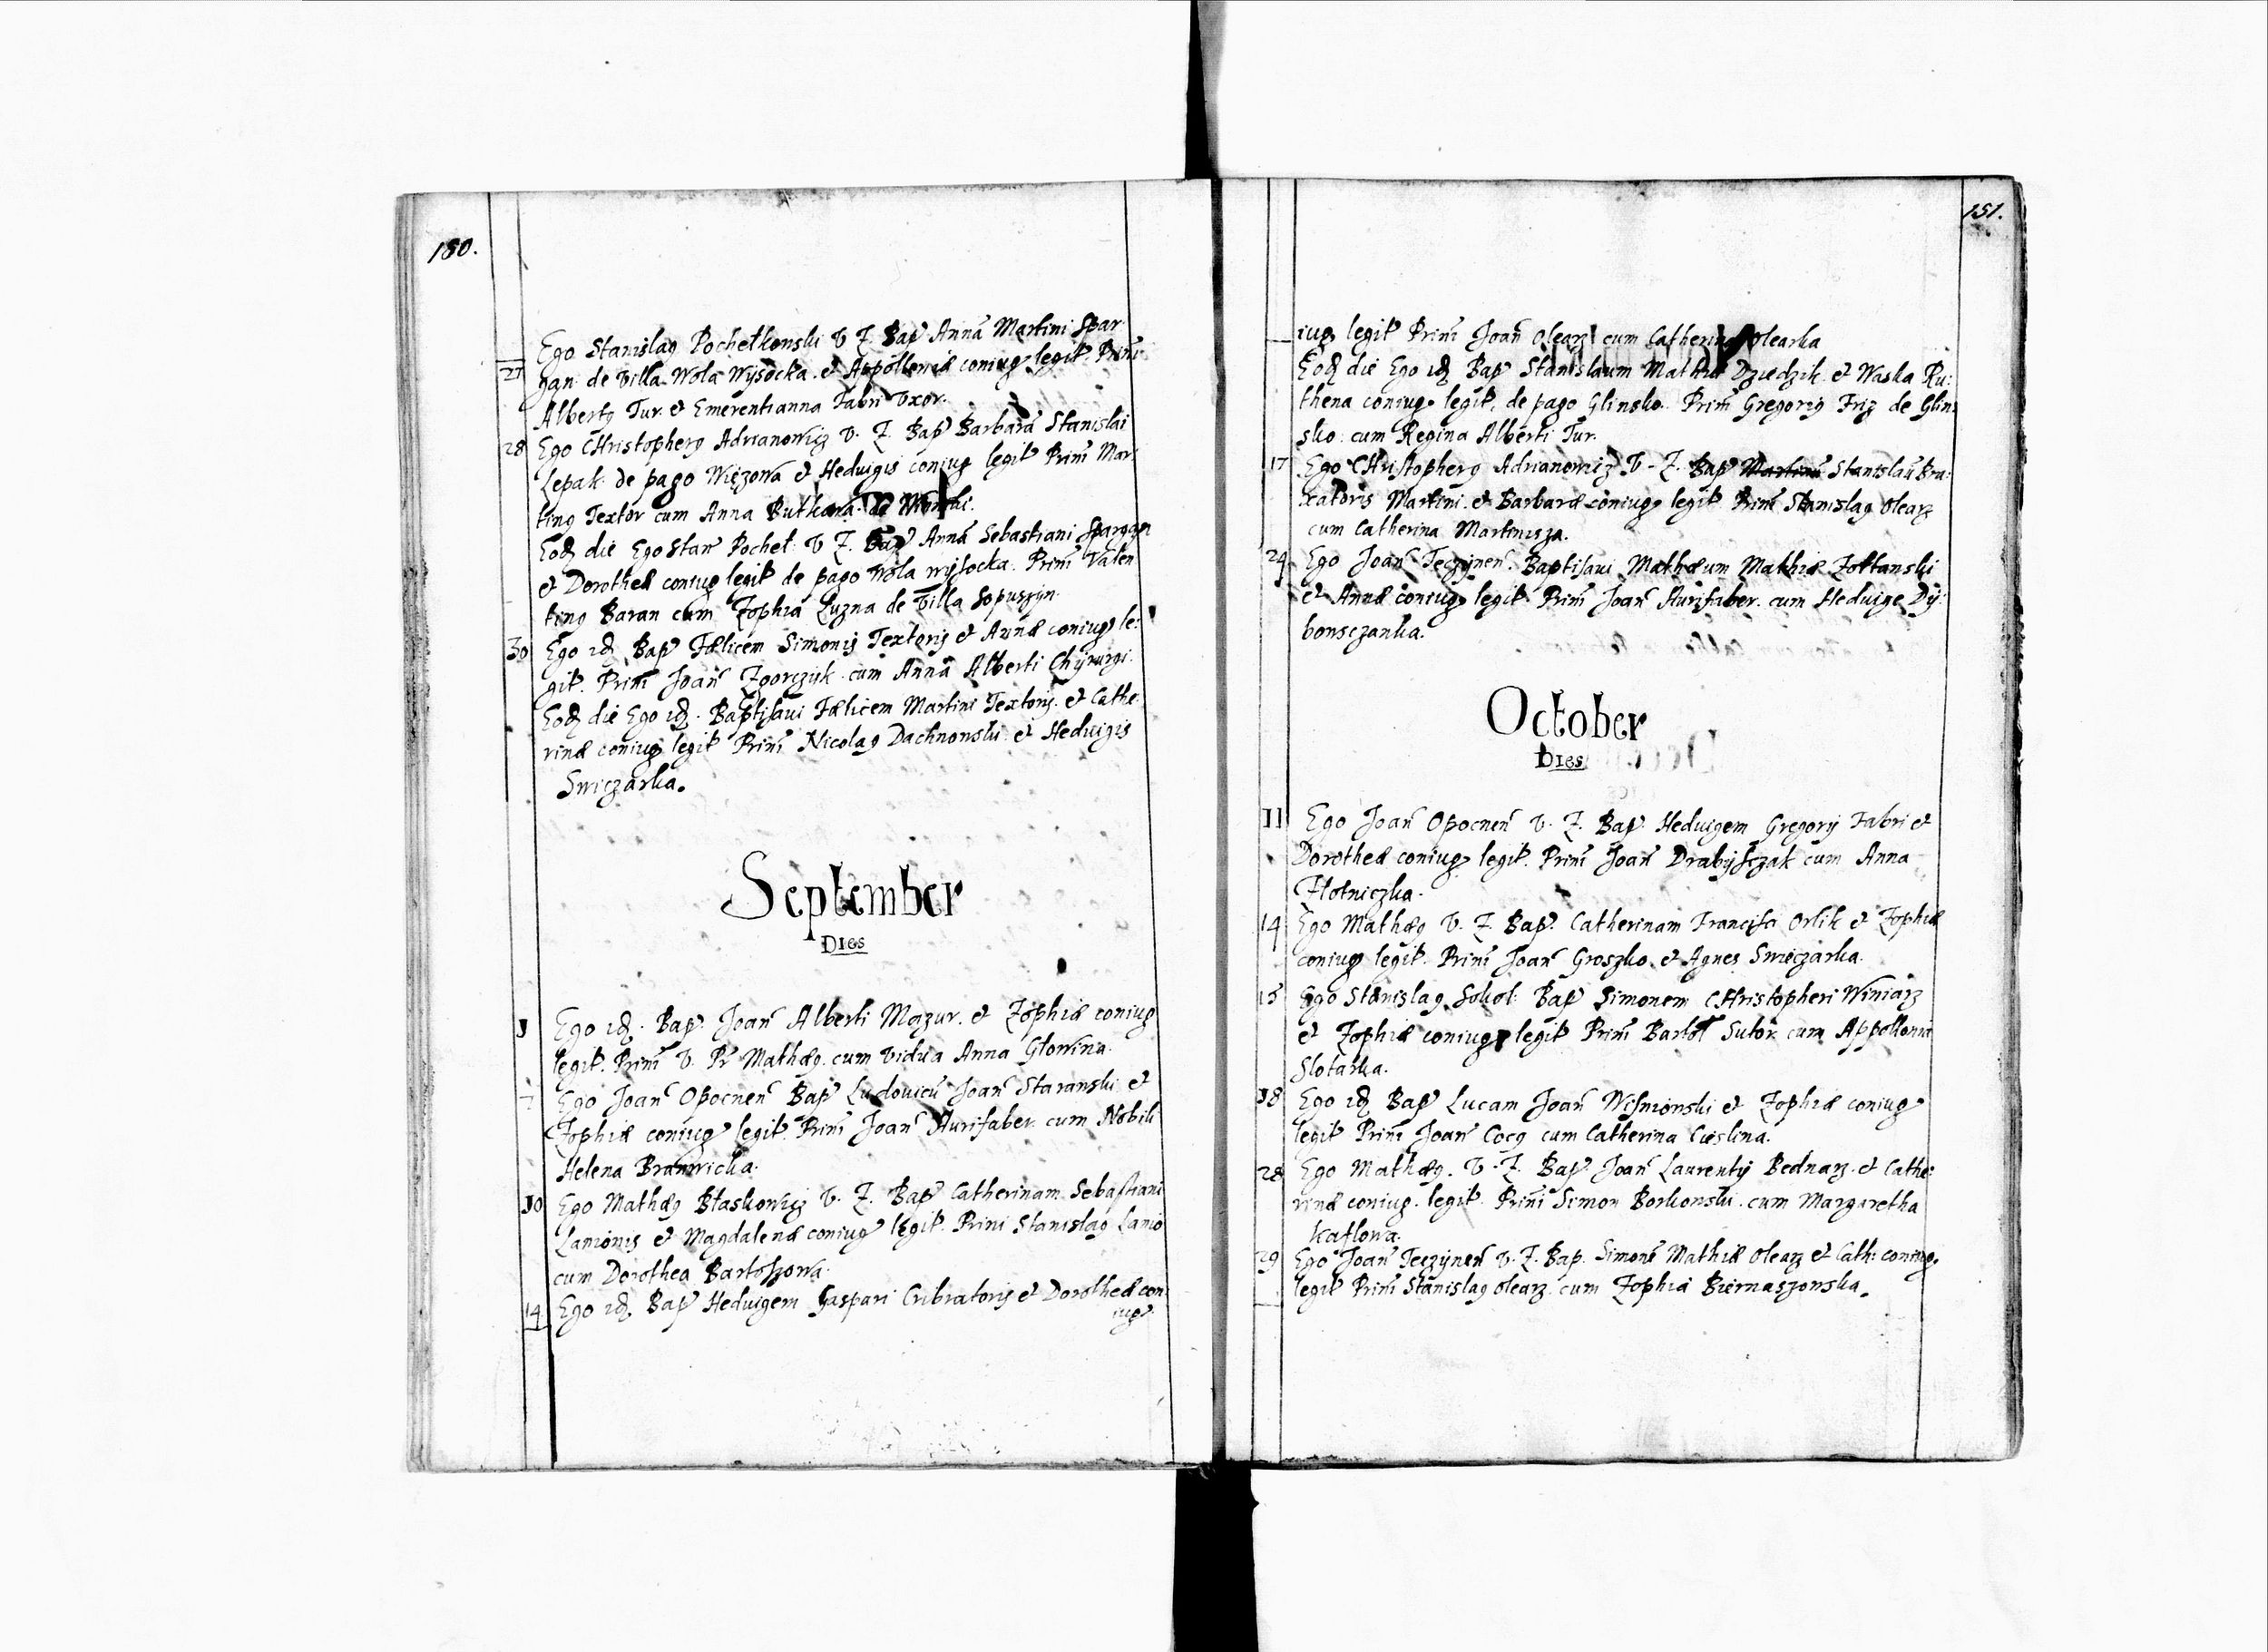 180.
21 Ego Stanislaq Pochetkonski V Z. Bap Annā Martini Spar:
gan de villa Wola Wysocka et Appolleniæ coniug legit. Prim
Albertq Tur et Emerentianna Fabri Vxor.
28 Ego Christopherq Adrianowicz V. Z. Bap Barbarā Stanislai
Lepak de pago Więzowa et Hedvigis coniug legit Prim Mar:
tinq Textor cum Anna
Eođ die Ego Stan Pochet: V Z. Bap Annā Sebastiani Spargan
et Dorotheæ coniug legit de pago Wola wysocka. Prim Valen
tinq Baran cum Zophia Luzna de Villa Sopuszyn.
30 Ego iđ Bap Fælicem Simonis Textoris et Annæ coniug le:
git. Prim Joan Zgorczyk cum Anna Alberti Chyrurgi.
Eođ die Ego iđ. Baptisaui Fælicem Martini Textoris et Cathe
rinæ coniug legit Prim Nicolaq Dachnonski et Hedvigis
Swiczarka.
September
Dies
Ego iđ. Bap. Joan Alberti Mazur. et Zophiæ coniug
legit. Prim V. Pr Mathæq cum vidua Anna Glowina.
7 Ego Joan Opocnen Bap Ludovicū Joan Staranski et
Zophiæ coniug legit. Prim Joan Aurifaber cum Nobili
Helena Branwicka.
10 Ego Mathæq Błaskowicz V. Z. Bap Catherinam Sebastiani
Lanionis et Magdalenæ coniug legit. Prim Stanislaq Lanio
cum Dorothea Bartoszowa.
14 Ego iđ. Bap Hedvigem Gaspari Cribratoris et Dorotheæ con
iug
151.
iug legit Prim Joan Olearz cum Catherina Olearka
Eođ die Ego iđ Bap Stanislaum Mathiæ Dziedzik et Waska Ru:
thena coniug legit. de pago Glinsko. Prim Gregoriq Friz de Glin:
sko cum Regina Alberti Tur.
17 Ego Christopherq Adrianowicz V. Z. Bap Martinū Stanislaū Bra:
xatoris Martini et Barbaræ coniug legit Prim Stanislaq Olearz
cum Catherina Martinisza.
24 Ego Joan Teczynen. Baptisaui Mathæum Mathiæ Zołtanski
et Annæ coniug legit Prim Joan Aurifaber. cum Hedvige Dy:
bonsczanka.
October
Dies
11 Ego Joan Opocnen V. Z. Bap. Hedvigem Gregorij Fabri et
Dorotheæ coniug legit. Prim Joan Drabyszczak cum Anna
Złotniczka.
14 Ego Mathæq V. Z. Bap. Catherinam Francisci Orlik et Zophiæ
coniug legit. Prim Joan Groszko et Agnes Swieczarka.
15 Ego Stanislaq Sokol: Bap Simonem Christopheri Winiarz
et Zophiæ coniug legit Prim Bartol Sutor cum Appollonia
Slotarka.
18 Ego iđ Bap Lucam Joan Wisnionski et Zophiæ coniug
legit Prim Joan Cocq cum Catherina Cieslina.
28 Ego Mathæq. V. Z. Bap. Joan Laurentij Bednarz et Cathe:
rinæ coniug. legit. Prim Simon Borkonski cum Margaretha
Kaflowa.
29 Ego Joan Teczynen V. Z. Bap. Simonē Mathiæ Olearz et Cath: coniug.
legit Prim Stanislaq Olearz cum Zophia Biernaszonska.